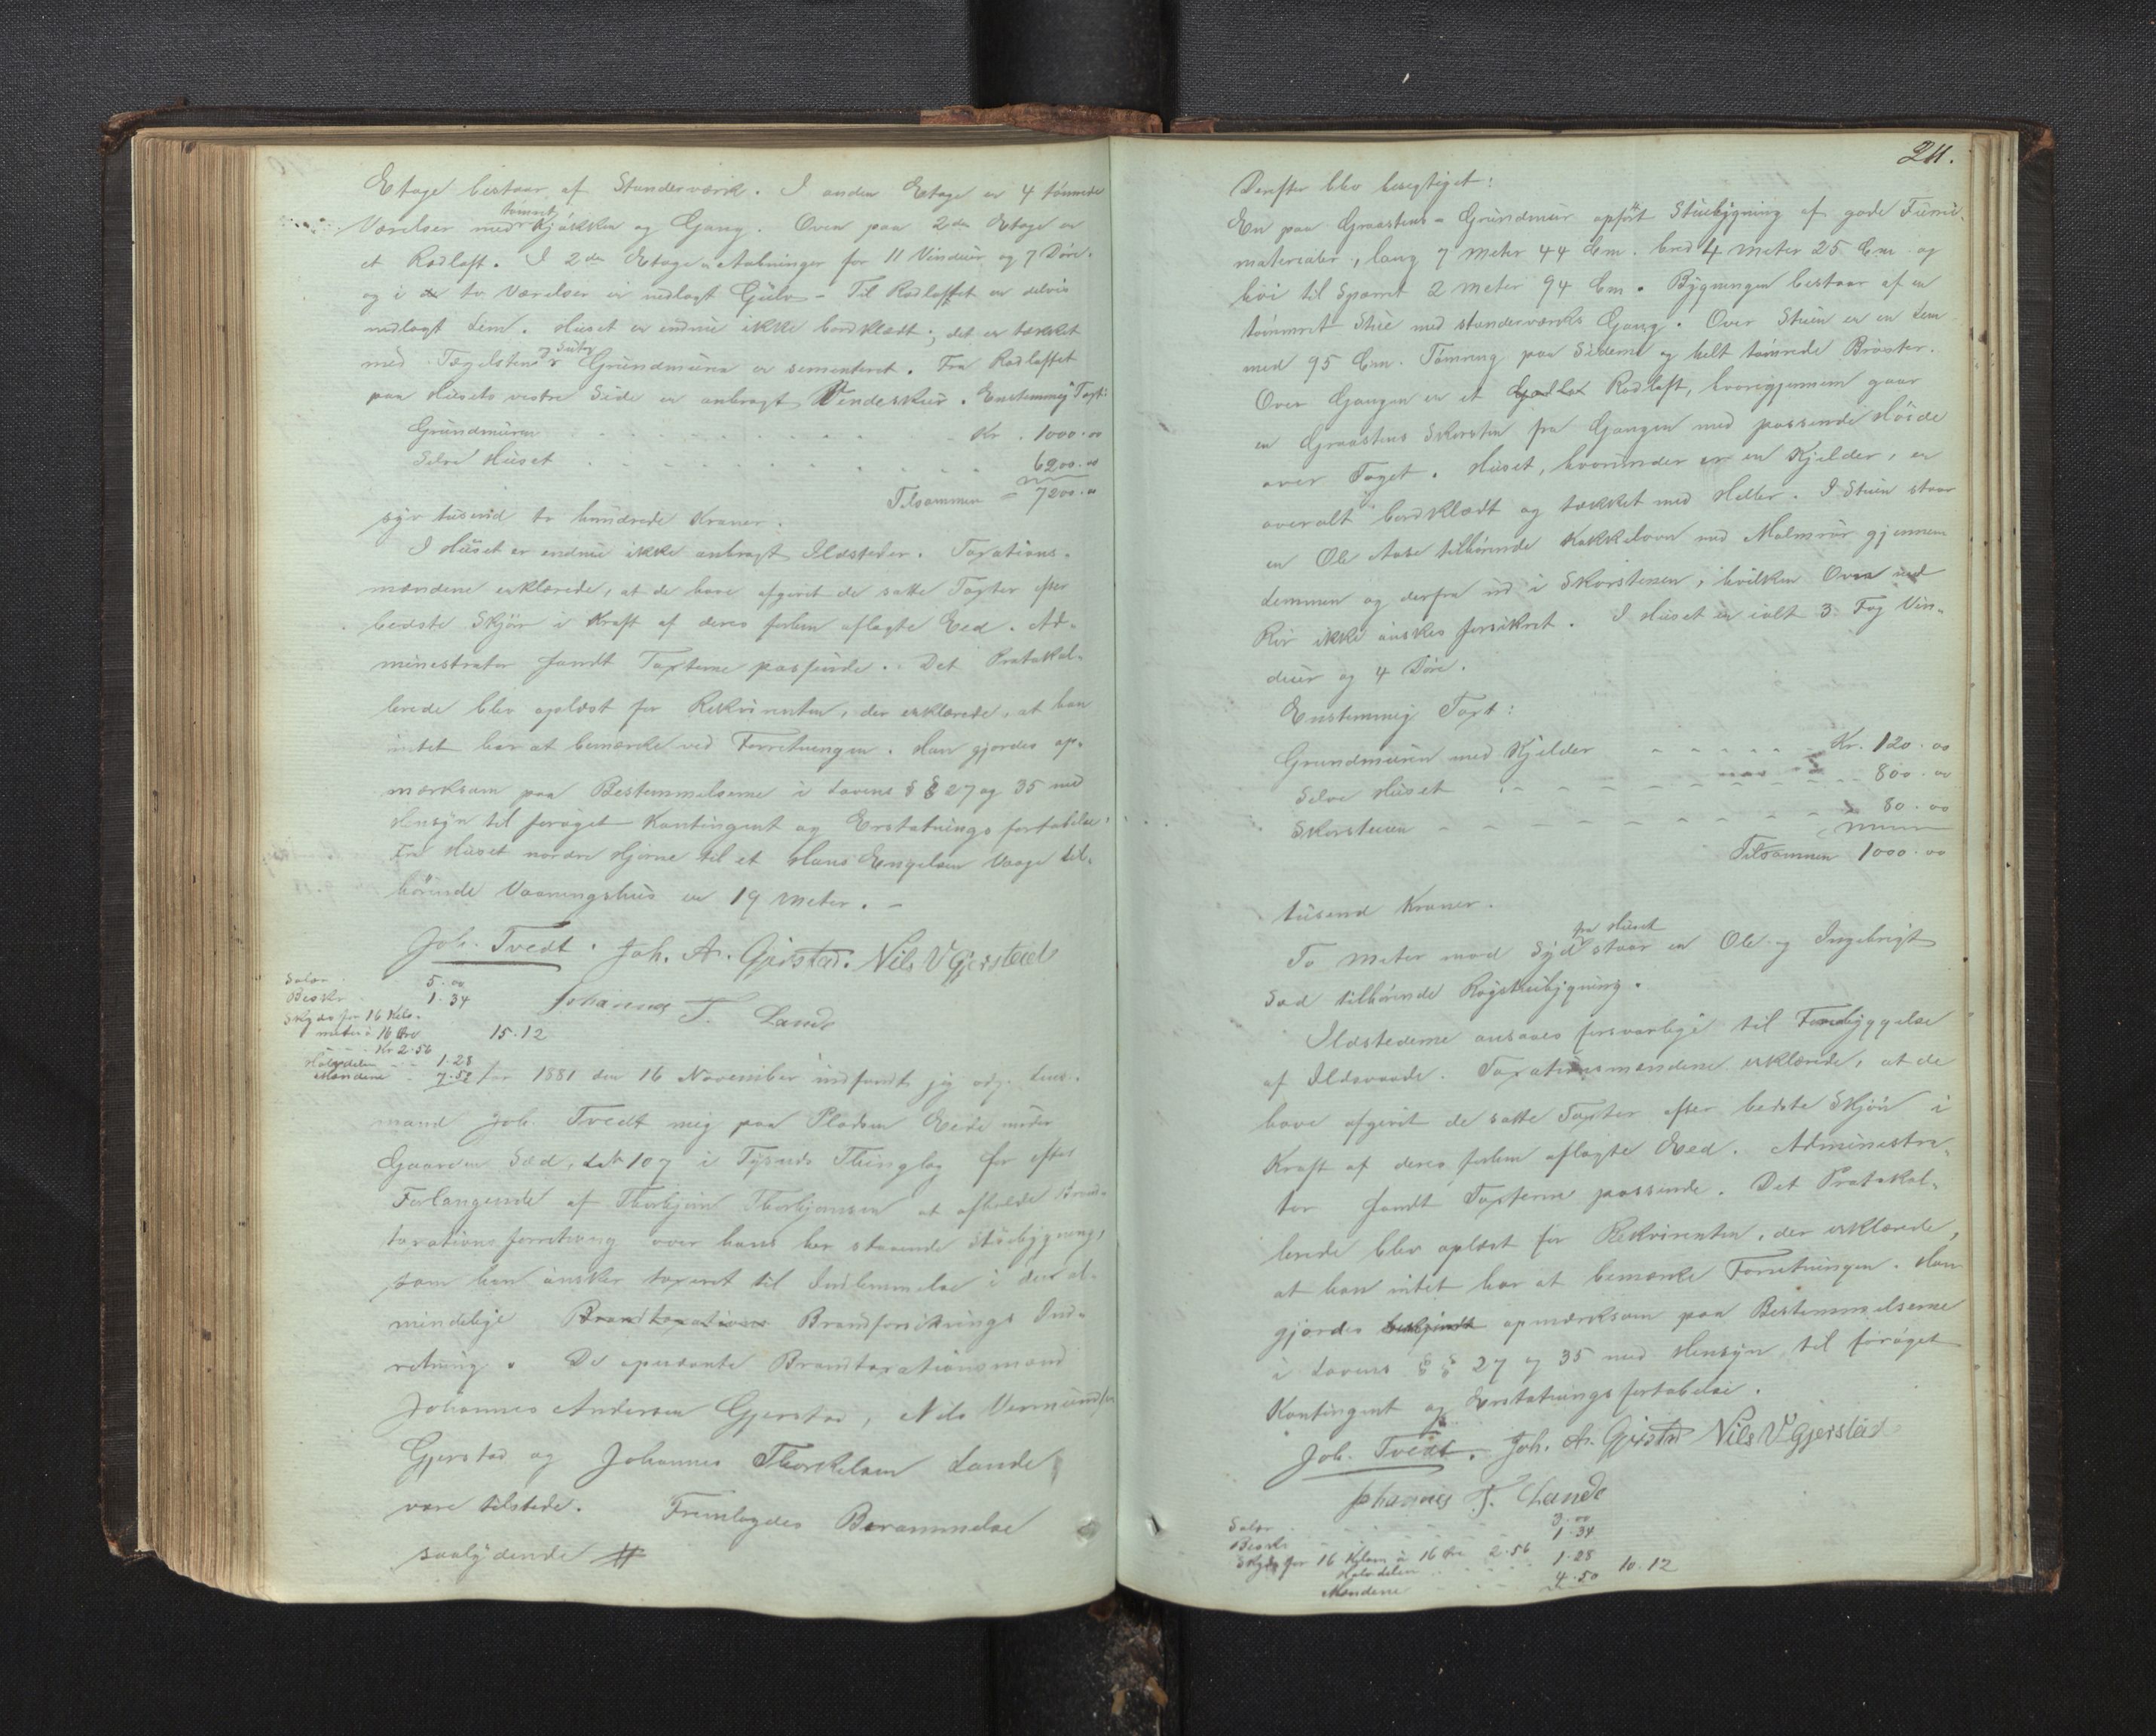 Etage bestaar af Standerværk. I anden Etage er 4 tømrede
Værelser med tømret Kjøkken og Gang. Oven paa 2den Etage er
et Rødloft. I 2den Etage er Aabninger for 11 Vinduer og 7 Døre.
og i to Værelser er nedlagt Gulv - Til Rødloftet er delvis
nedlagt Lem. Huset er endnu ikke bordklædt; det er tækket
med Tægelsten og Grundmuren er sementeret. Fra Rødloftet
paa Husets vestre Side er anbragt Vindeskur. Enstemmig Taxt:
Grundmuren Kr. 1000.00
Selve Huset 6200.00
Tilsammen = 7200.00
syv tusend to hundrede Kroner.
I Huset er endnu ikke anbragt Ildsteder. Taxations-
mændene erklærede, at de have afgivet de satte Taxter efter
bedste Skjøn i Kraft af deres forhen aflagte Eed. Ad-
ministrator fandt Taxterne passende. Det Protokol-
lerede blev oplæst for Rekvirenten, der erklærede, at han
intet har at bemærke ved Forretningen. Han gjordes op-
mærksom paa Bestemmelserne i Lovens §§ 27 og 35 med
Hensyn til forøget Kontingent og Erstatningsfortabelse.
Fra Huset nordre Hjørne til et Hans Engelsen Vaage til-
hørende Vaaningshus er 19 meter. -
Joh. Tvedt. Joh. A. Gjerstad. Nils V Gjerstad
Johannes T. Lande
Salær 5.00
Beskr. 1.34
Skyds for 16 Kilo-
meter a 16 Øre 15.12
Kr 2.56
Halvdelen 1.28
Mændene 7.50
Aar 1881 den 16 November indfandt jeg Lens-
mand Joh. Tvedt mig paa Pladsen Eide under
Gaarden Sæd, L№ 107 i Tysnes Thinglag for efter
Forlangende af Thorbjørn Thorbjørnsen at afholde Brand-
taxationsforretning over hans her staaende Stuebygning,
som han ønsker taxeret til Indlemmelse i den al-
mindelige Brandtaxations Brandforsikrings Ind-
retning. De opnævnte Brandtaxationsmænd
Johannes Andersen Gjerstad, Nils Vermundsen
Gjerstad og Johannes Thorkelsen Lande
vare tilstede. Fremlagdes Berammelse
saalydende #
211.
Derefter blev besigtiget:
En paa Graastens-Grundmur opført Stuebygning af gode Furu-
materialier, lang 7 Meter 44 Cm. bred 4 Meter 25 Cm og
høi til Sparret 2 Meter 94 Cm. Bygningen bestaar af en
tømmret Stue med standerværks Gang. Over Stuen er en Lem
med 95 Cm. Tømring paa Siderne og helt tømrede Brøster.
Over Gangen er et Rødloft, hvorigjennem gaar
en Graastens Skorsten fra Gangen med passende Høide
over Taget. Huset, hvorunder er en Kjelder, er
overalt bordklædt og tækket med Heller. I Stuen staar
en Ole Aase tilhørende Kakkelovn med Malmrør gjennem
Lemmen og derfra ud i Skorstenen, hvilken Ovn med
Rør ikke ønskes forsikret. I Huset er ialt 3 Fag Vin-
duer og 4 Døre.
Enstemmig Taxt:
Grundmuren med Kjelder Kr. 120.00
Selve Huset 800.00
Skorstenen 80.00
Tilsammen 1000.00
tusend Kroner.
To Meter mod Syd fra Huset staar en Ole og Ingebrigt
Sæd tilhørende Røgstuebygning.
Ildstederne ansaaes forsvarlige til Forebyggelse
af Ildsvaade. Taxationsmændene erklærede, at de
have afgivet de satte Taxter efter bedste Skjøn i
Kraft af deres forhen aflagte Eed. Administra-
tor fandt Taxterne passende. Det Protokol-
lerede blev oplæst for Rekvirenten, der erklærede,
at han intet har at bemærke Forretningen. Han
gjordes opmærksom paa Bestemmelserne
i Lovens §§ 27 og 35 med Hensyn til forøget
Kontingent og Erstatningsfortabelse.
Joh. Tvedt. Joh. A. Gjerstad Nils V Gjerstad
Johannes T. Lande
Salær 3.00
Beskr 1.34
Skyds for 16 Kilom à 16 Øre 2.56
Halvdelen 1.28 10.12
Mændene 4.50